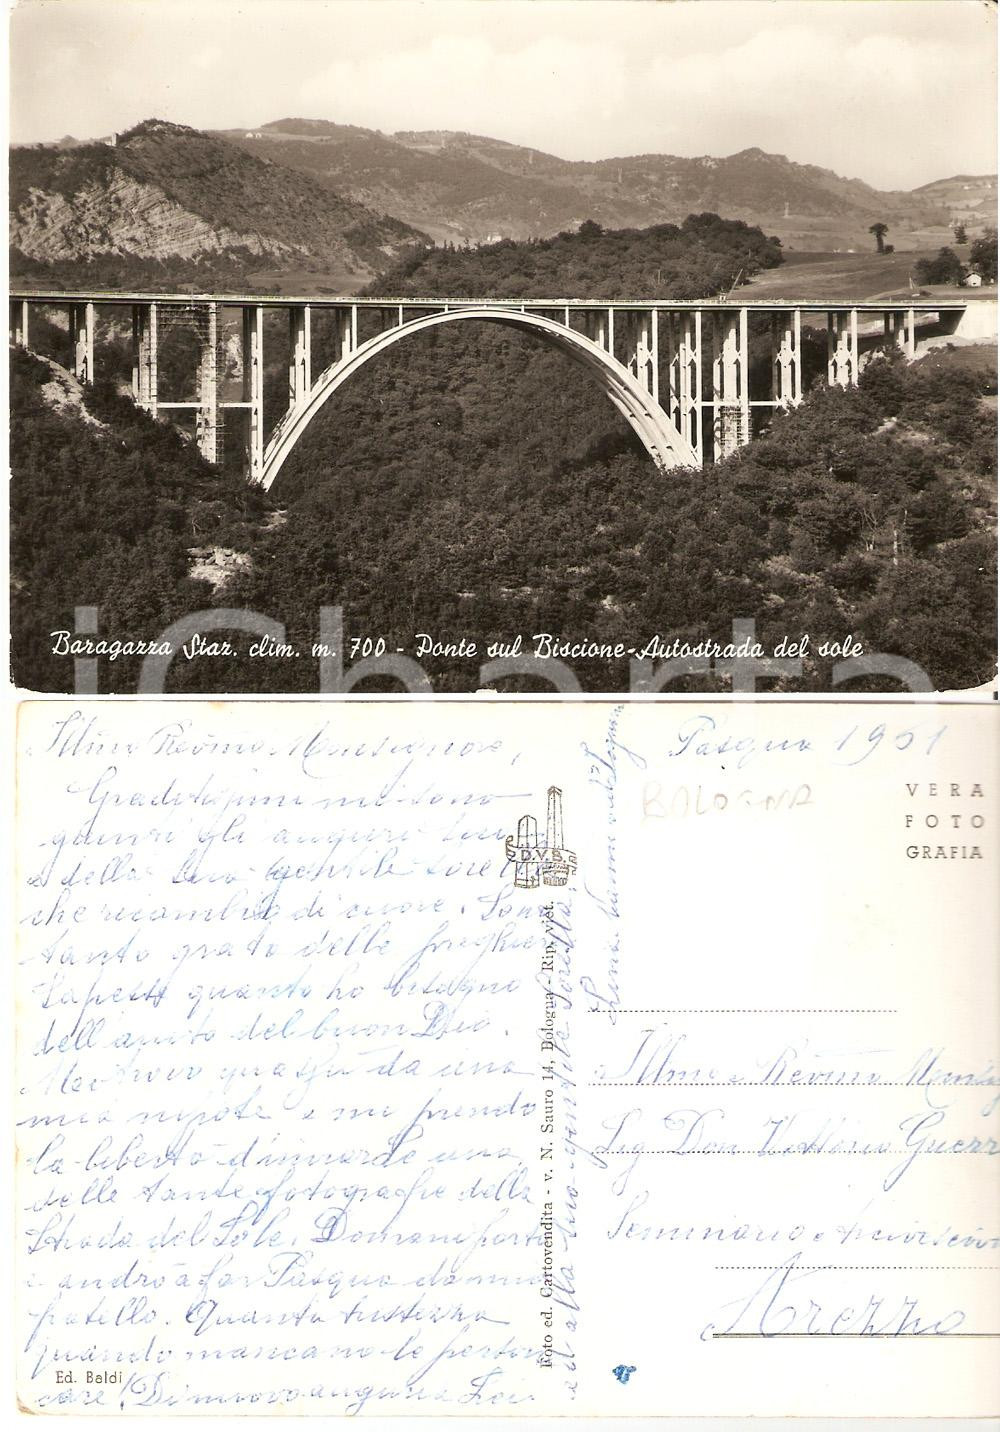 Baragazza Staz. clim. m. 700 - Ponte sul Biscione - Autostrada del sole
iCharta
Illmo Revmo Monsignore,
Graditissimi mi sono
giunti gli auguri Suoi
e della Sua gentile sorella
che ricambio di cuore. Sono
tanto grato delle preghiere
Sapesse quanto ho bisogno
dell'aiuto del buon Dio.
Mi trovo quassù da una
mia nipote e mi prendo
la libertà d'inviarLe una
delle tante fotografie della
Strada del Sole. Domani parto
e andrò a far Pasqua da mio
fratello. Quanta tristezza
quando mancano le persone
care! Di nuovo auguri a Lei
e alla Sua gentile Sorella.
Ed. Baldi
D.V.B.
Foto ed. Cartovendita - v. N. Sauro 14, Bologna - Rip. viet.
Pasqua 1961
BOLOGNA
VERA
FOTO
GRAFIA
Illmo e Revmo
Sig Don Vittorio
Seminario
Arezzo